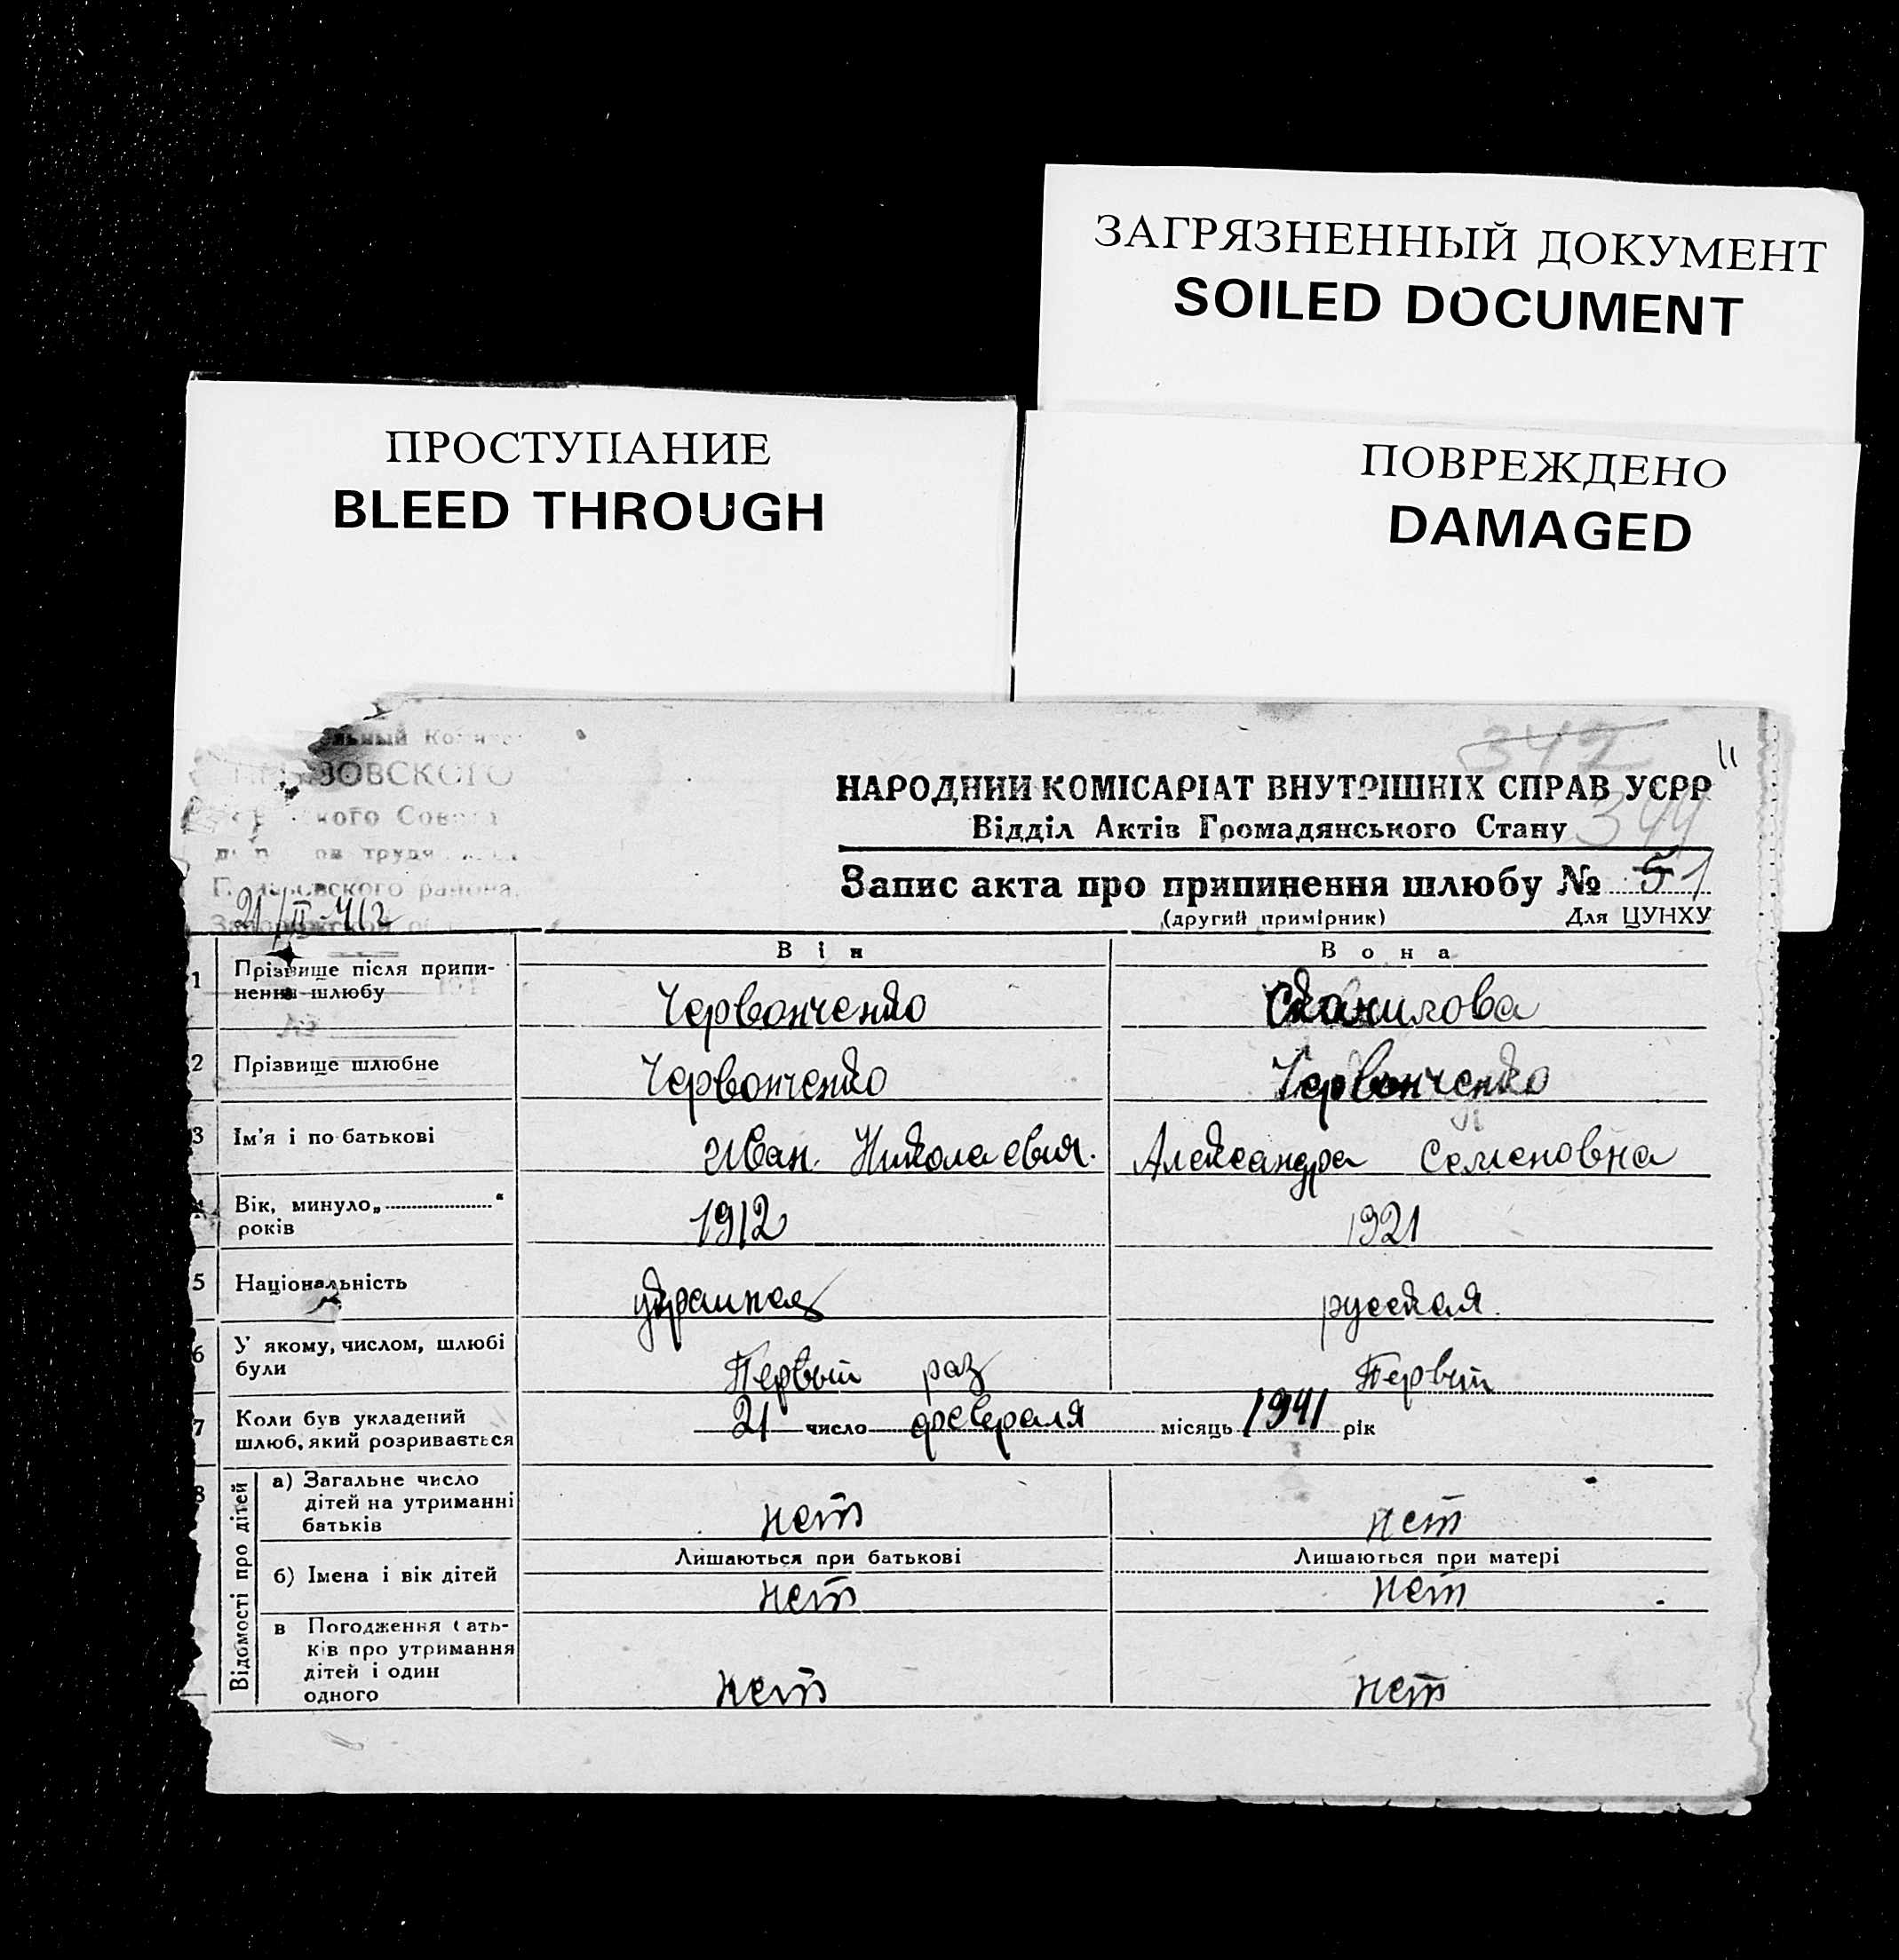 ЗАГРЯЗНЕННЫЙ ДОКУМЕНТ
SOILED DOCUMENT
ПРОСТУПАНИЕ
BLEED THROUGH
ПОВРЕЖДЕНО
DAMAGED
342
11
НАРОДНИЙ КОМІСАРІАТ ВНУТРІШНІХ СПРАВ УСРР
344
Відділ Актів Громадянського Стану
Запис акта про припинення шлюбу № 51
(другий примірник) Для ЦУНХУ
района
21/II-41 г
Він Вона
1 Прізвище після припинення шлюбу Червонченко
2 Прізвище шлюбне Червонченко Червонченко
3 Ім'я і по-батькові Иван Николаевич. Александра Семеновна
4 Вік, минуло „ “ років 1912 1921
5 Національність русская.
6 У якому, числом, шлюбі були Первый раз Первый
7 Коли був укладений шлюб, який розривається 21 число февраля місяць 1941 рік
8 Відомості про дітей
а) Загальне число дітей на утриманні батьків нет нет
Лишаються при батькові Лишаються при матері
б) Імена і вік дітей нет нет
в Погодження батьків про утримання дітей і один одного нет нет